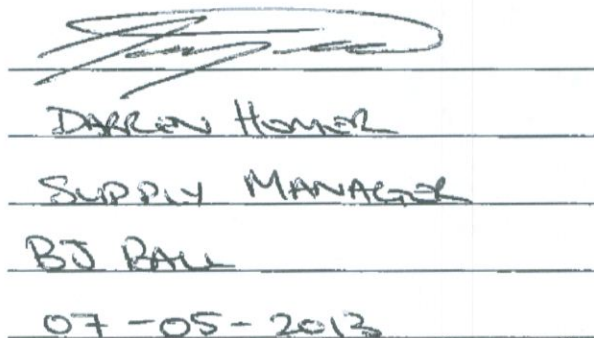 DARREN HOMER
SUPPLY MANAGER
BJ BALL
07-05-2013